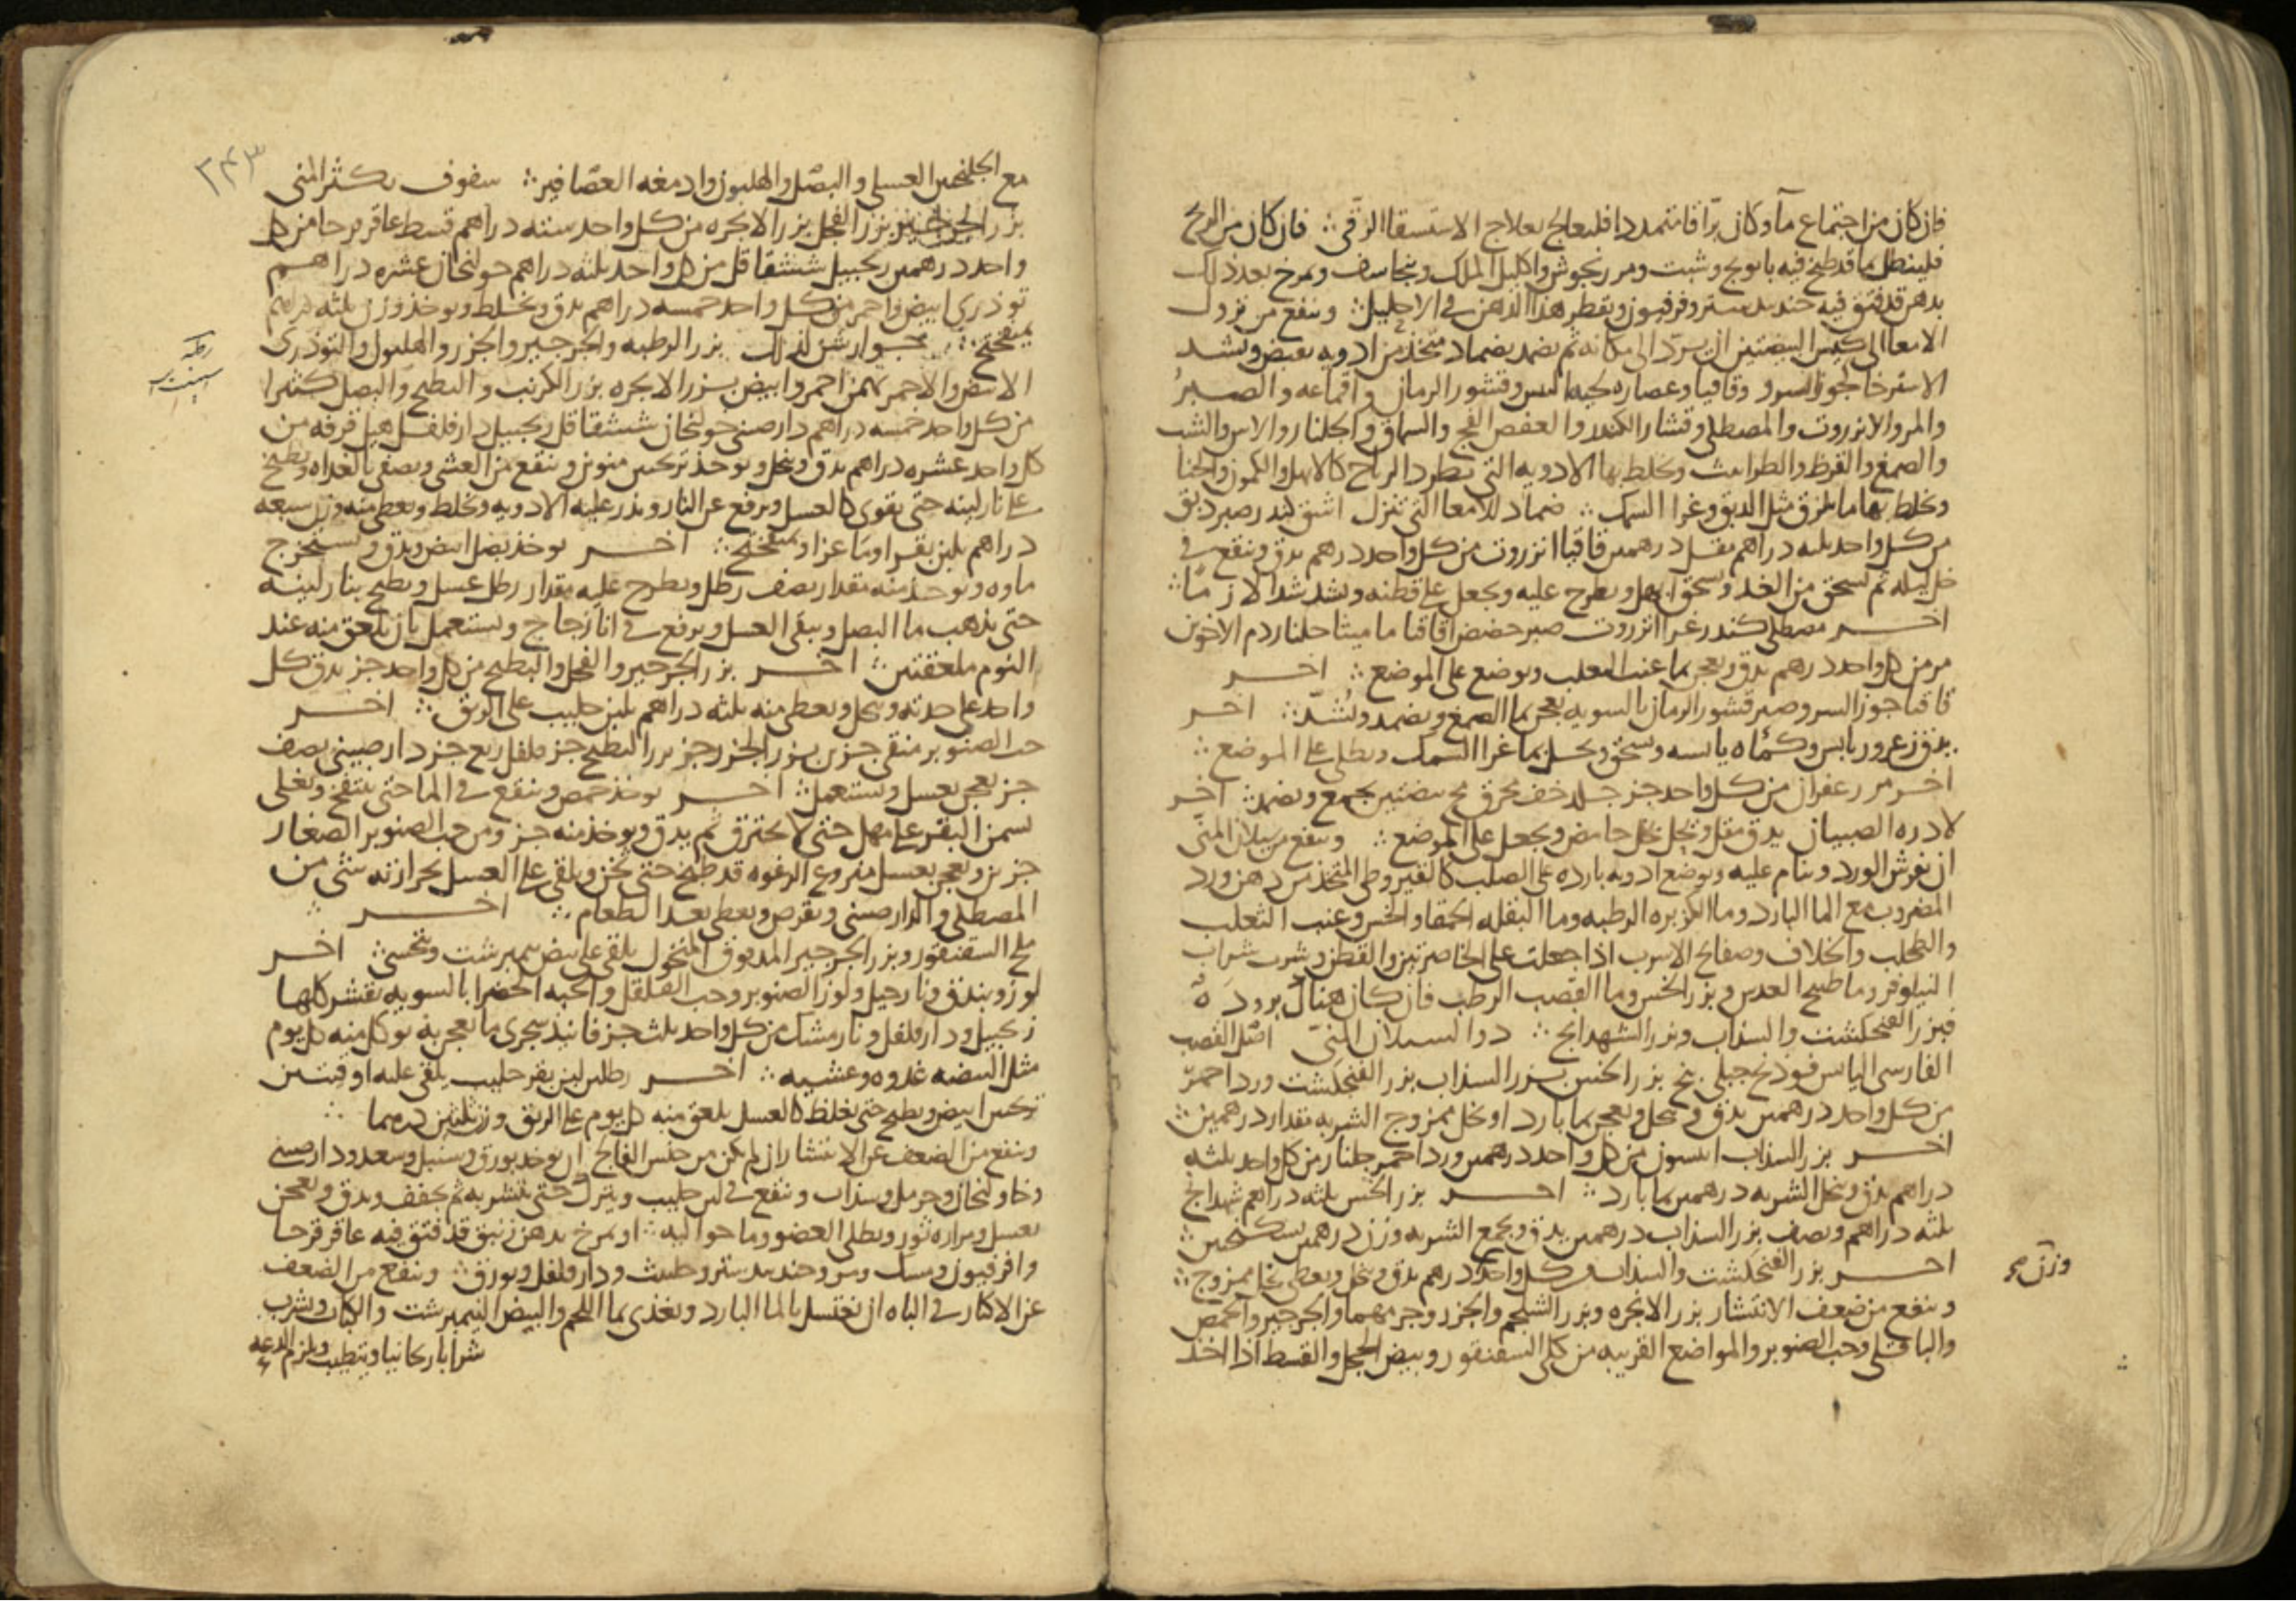 فان كان من اجتماع مآ وكان براقا متمددا فليعالج بعلاج الاستسقا الزقى ∴ فان كان من الريح
فلينطل بما قد طبخ فيه بابونج وشبت ومرزنجوش واكليل الملك وبنجاسف ويمرخ بعد ذلك
بدهن قد فتق فيه جندبيدستر وفرفيون ويقطر هذا الدهن في الاحليل ∴ وينفع من نزول
الامعا الى كيس البيضتين ان يرد الى مكانه ثم يضمد بضماد متخذ من ادويه تقبض وتشد
الاسترخا كجوز السرو وقاقيا وعصاره لحيه التيس وقشور الرمان واقماعه والصبر
والمر والانزروت والمصطكى وقشار الكندر والعفص الفج والسماق والجلنار والاس والشب
والصمغ والقرظ والطراثيث ويخلط بها الادويه التى تطرد الرياح كالابهل والكمون والحنا
ويخلط بها ما يلزق مثل الدبق وغرا السمك ∴ ضماد للامعا التى تنزل اشق كندر صبر دبق
من كل واحد ثلثه دراهم مقل درهمين قاقيا انزروت من كل واحد درهم يدق وينقع في
خل ليله ثم يسحق من الغد ويسحق ابهل ويطرح عليه ويجعل على قطنه ويشد شدا لازما ∴
اخر مصطكى كندر غرا انزروت صبر حضض اقاقيا ماميثا جلنار دم الاخوين
مر من كل واحد درهم يدق ويعجن بما عنب الثعلب ويوضع على الموضع ∴ اخر
قاقيا جوز السرو صبر قشور الرمان بالسويه يعجن بما الصمغ ويضمد ويشد ∴ اخر
يدق زعرور يابس وكماه يابسه ويسحق ويحل بما غرا السمك ويطلى على الموضع ∴
اخر مر زعفران من كل واحد جز جلد خف محرق مح بيضتين يجمع ويضمد ∴ اخر
لادره الصبيان يدق مقل ويحل بخل حامض ويجعل على الموضع ∴ وينفع من سيلان المنى
ان يفرش الورد وينام عليه ويوضع ادويه بارده على الصلب كالقيروطى المتخذ من دهن ورد
المضروب مع الما البارد وما الكزبره الرطبه وما البقله الحمقا والخس وعنب الثعلب
والطحلب والخلاف وصفايح الاسرب اذا جعلت على الخاصرتين والقطن وشرب شراب
النيلوفر وما طبيخ العدس وبزر الخس وما القصب الرطب فان كان هناك بروده
فبزر الفنجنكشت والسذاب وبزر الشهدانج ∴ دوا لسيلان المنى اصل القصب
الفارسى اليابس فوذنج جبلى بنج بزر الخس بزر السذاب بزر الفنجنكشت ورد احمر
من كل واحد درهمين يدق وينخل ويعجن بما بارد او بخل ممزوج الشربه مقدار درهمين ∴
اخر بزر السذاب انيسون من كل واحد درهمين ورد احمر جلنار من كل واحد ثلثه
دراهم يدق وينخل الشربه درهمين بما بارد ∴ اخر بزر الخس ثلثه دراهم شهدانج
ثلثه دراهم ونصف بزر السذاب درهمين يدق ويجمع الشربه وزن درهمين بسكنجبين ∴
اخر بزر الفنجنكشت والسذاب من كل واحد درهم يدق وينخل ويعطى بخل ممزوج ∴
وينفع من ضعف الانتشار بزر الانجره وبزر الشلجم والجزر وجرمهما والجرجير والحمص
والباقلى وحب الصنوبر والمواضع القريبه من كلى السقنقور وبيض الحجل والقسط اذا اخذ
٣٤٣
مع الجلنجبين العسلى والبصل والهليون وادمغه العصافير ∴ سفوف يكثر المنى
بزر الجرجير بزر الفجل بزر الانجره من كل واحد سته دراهم قسط عاقرقرحا من كل
واحد درهمين زنجبيل ششقاقل من كل واحد ثلثه دراهم خولنجان عشره دراهم
توذرى ابيض واحمر من كل واحد خمسه دراهم يدق ويخلط ويوخذ وزن ثلثه دراهم
بميفختج ∴ جوارشن لذلك بزر الرطبه والجرجير والجزر والهليون والتوذرى
الابيض والاحمر بهمن احمر وابيض بزر الانجره بزر الكرنب والبطيخ والبصل كثيرا
من كل واحد خمسه دراهم دارصينى خولنجان ششقاقل زنجبيل دارفلفل هيل قرفه من
كل واحد عشره دراهم يدق وينخل ويوخذ ترنجبين منوين وينقع من العشى ويصفى بالغداه ويطبخ
على نار لينه حتى يقوى كالعسل ويرفع عن النار ويذر عليه الادويه ويخلط ويعطى منه وزن سبعه
دراهم بلبن بقر او ما عز او بميفختج ∴ اخر يوخذ بصل ابيض ويدق ويستخرج
ماوه ويوخذ منه مقدار نصف رطل ويطرح عليه مقدار رطل عسل ويطبخ بنار لينه
حتى يذهب ما البصل ويبقى العسل ويرفع في انا زجاج ويستعمل بان يلعق منه عند
النوم ملعقتين ∴ اخر بزر الجرجير والفجل والبطيخ من كل واحد جز يدق كل
واحد على حدته وينخل ويعطى منه ثلثه دراهم بلبن حليب على الريق ∴ اخر
حب الصنوبر منقى جزين بزر الجزر جز بزر البطيخ جز فلفل ربع جز دارصينى نصف
جز يعجن بعسل ويستعمل ∴ اخر يوخذ حمص وينقع في الما حتى ينتفخ ويغلى
بسمن البقر على مهل حتى لا يحترق ثم يدق ويوخذ منه جز ومن حب الصنوبر الصغار
جزين ويعجن بعسل منزوع الرغوه قد طبخ حتى يخن ويلقى على العسل بحرارته شى من
المصطكى والدارصينى ويقرص ويعطى بعد الطعام ∴ اخر ∴
ملح السقنقور وبزر الجرجير المدقوق المنخول يلقى على بيض نيمبرشت ويتحسى ∴ اخر
لوز وبندق ونارجيل ولوز الصنوبر وحب القلقل والحبه الخضرا بالسويه تقشر كلها
زنجبيل ودارفلفل ونارمشك من كل واحد ثلث جز فانيذ سجزى ما يعجن به يوكل منه كل يوم
مثل البيضه غدوه وعشيه ∴ اخر رطلين لبن بقر حليب يلقى عليه اوقيتين
ترنجبين ابيض ويطبخ حتى يغلظ كالعسل يلعق منه كل يوم على الريق وزن ثلثين درهما ∴
وينفع من الضعف عن الانتشار ان لم يكن من جنس الفالج ان يوخذ بورق وسنبل وسعد ودارصينى
وخاولنجان وحرمل وسذاب وينقع في لبن حليب ويترك حتى يتشربه ثم يجفف ويدق ويعجن
بعسل ومراره ثور ويطلى العضو وما حواليه ∴ او يمرخ بدهن زنبق قد فتق فيه عاقرقرحا
وافرفيون ومسك وجندبيدستر وحلتيث ودارفلفل وبورق ∴ وينفع من الضعف
عن الاكثار في الباه ان يغتسل بالما البارد ويغذى بما اللحم والبيض النيمبرشت والكباب ويشرب
شرابا ريحانيا ويتطيب ويلزم الدعه